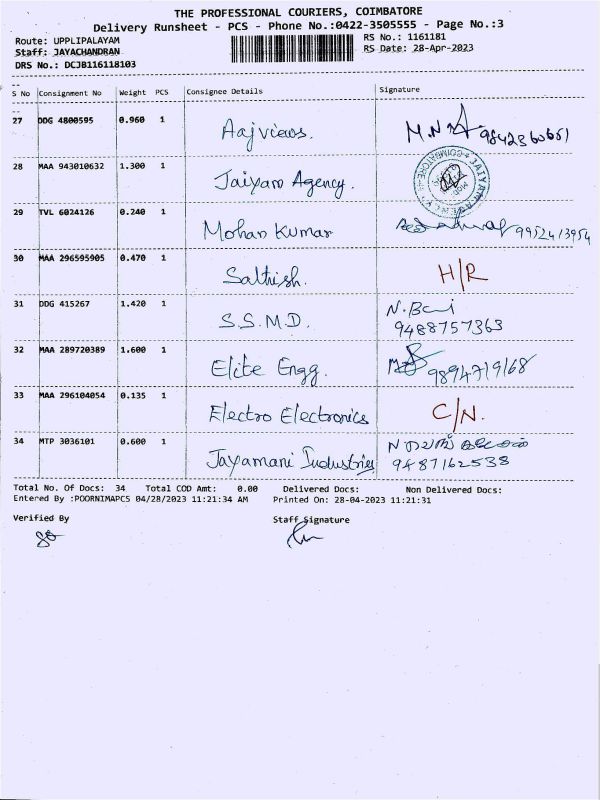 THE PROFESSIONAL COURIERS, COIMBATORE
Delivery Runsheet - PCS - Phone No.:0422-3505555 - Page No.:3
Route: UPPLIPALAYAM RS No.: 1161181
Staff: JAYACHANDRAN RS Date: 28-Apr-2023
DRS No.: DCJB116118103
S No Consignment No Weight PCS Consignee Details Signature
27 DDG 4800595 0.960 1 Aajviews. 9842560651
28 MAA 943010632 1.300 1 Jaiyam Agency.
29 TVL 6024126 0.240 1 Mohan Kumar 9952413954
30 MAA 296595905 0.470 1 Sathish. H/R
31 DDG 415267 1.420 1 S.S.M.D. 9488757363
32 MAA 289720389 1.600 1 Elite Engg. 9894719168
33 MAA 296104054 0.135 1 Electro Electronics C/N.
34 MTP 3036101 0.600 1 Jayamani Industries 9487162538
Total No. Of Docs: 34 Total COD Amt: 0.00 Delivered Docs: Non Delivered Docs:
Entered By :POORNIMAPCS 04/28/2023 11:21:34 AM Printed On: 28-04-2023 11:21:31
Verified By Staff Signature